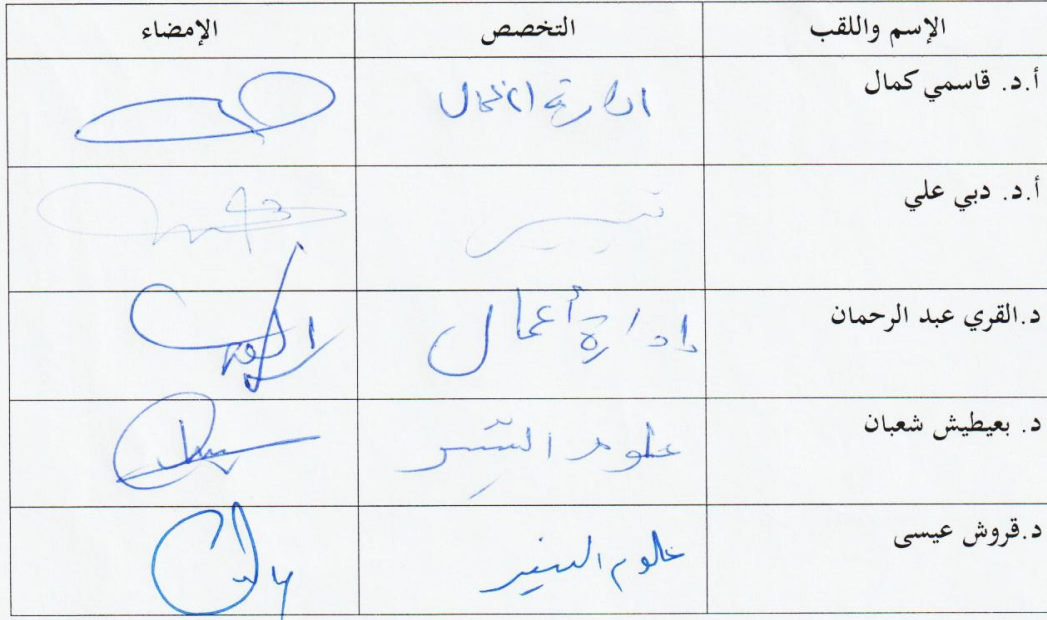 الإسم واللقب التخصص الإمضاء
أ.د. قاسمي كمال ادارة اعمال
أ.د. دبي علي تسيير
د.القري عبد الرحمان إدارة أعمال
د. بعيطيش شعبان علوم التسيير
د.قروش عيسى علوم التسيير